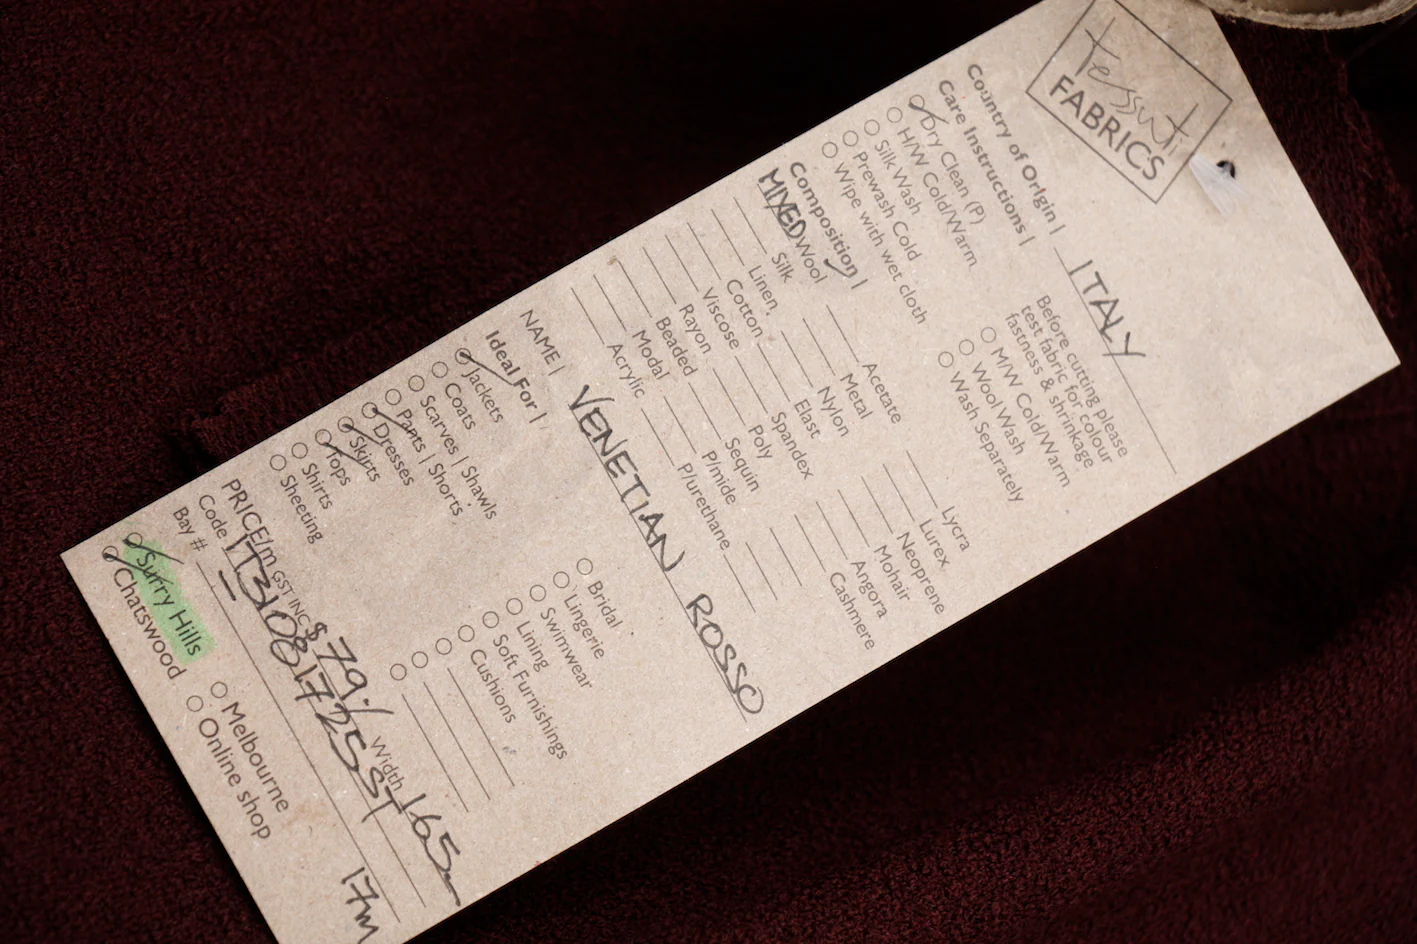 tessuti
FABRICS
Country of Origin | ITALY
Care Instructions |
Dry Clean (P)
H/W Cold/Warm
Silk Wash
Prewash Cold
Wipe with wet cloth
Before cutting please
test fabric for colour
fastness & shrinkage
M/W Cold/Warm
Wool Wash
Wash Separately
Composition |
MIXED Wool
Silk
Linen
Cotton
Viscose
Rayon
Beaded
Modal
Acrylic
Acetate
Metal
Nylon
Elast
Spandex
Poly
Sequin
P/mide
P/urethane
Lycra
Lurex
Neoprene
Mohair
Angora
Cashmere
NAME | VENETIAN ROSSO
Ideal For |
Jackets
Coats
Scarves | Shawls
Pants | Shorts
Dresses
Skirts
Tops
Shirts
Sheeting
Bridal
Lingerie
Swimwear
Lining
Soft Furnishings
Cushions
PRICE/m GST INC $79./ Width 165
Code IT310817725ST
Bay # 17m
Surry Hills
Chatswood
Melbourne
Online shop